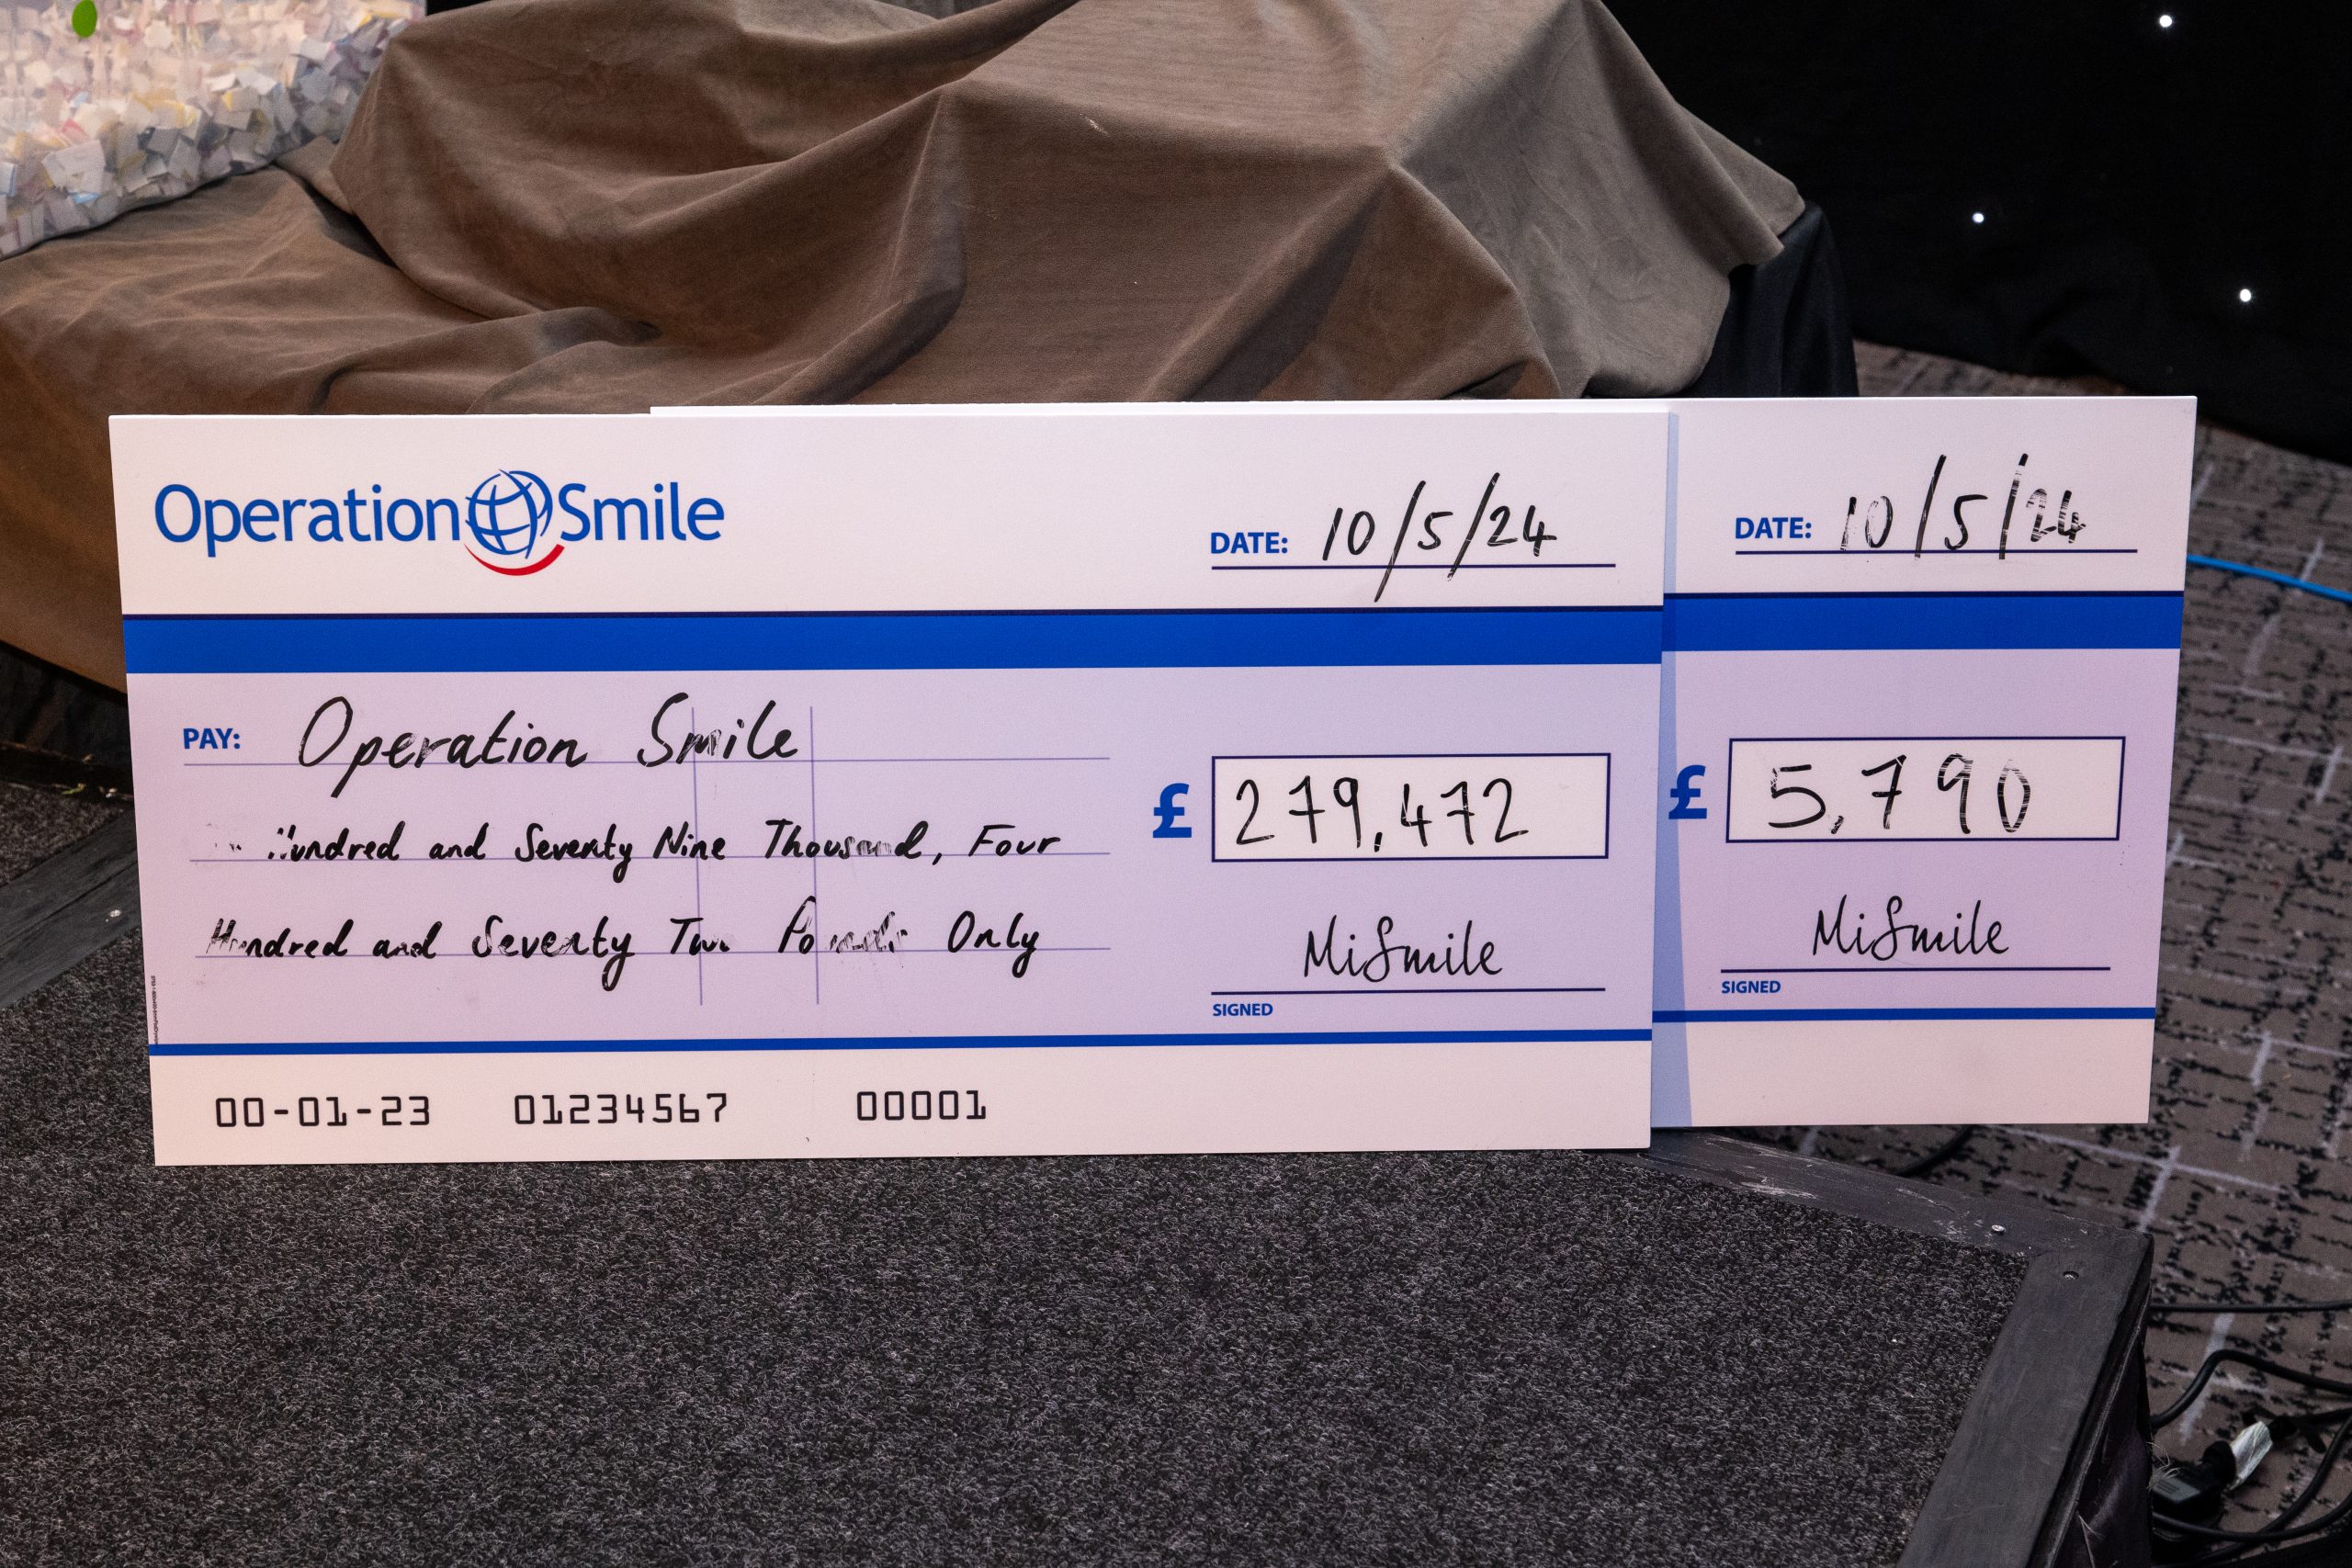 Operation Smile
DATE: 10/5/24
PAY: Operation Smile
Hundred and Seventy Nine Thousand, Four
Hundred and Seventy Two Pounds Only
£ 279,472
MiSmile
SIGNED
00-01-23 01234567 00001
DATE: 10/5/24
£ 5,790
MiSmile
SIGNED